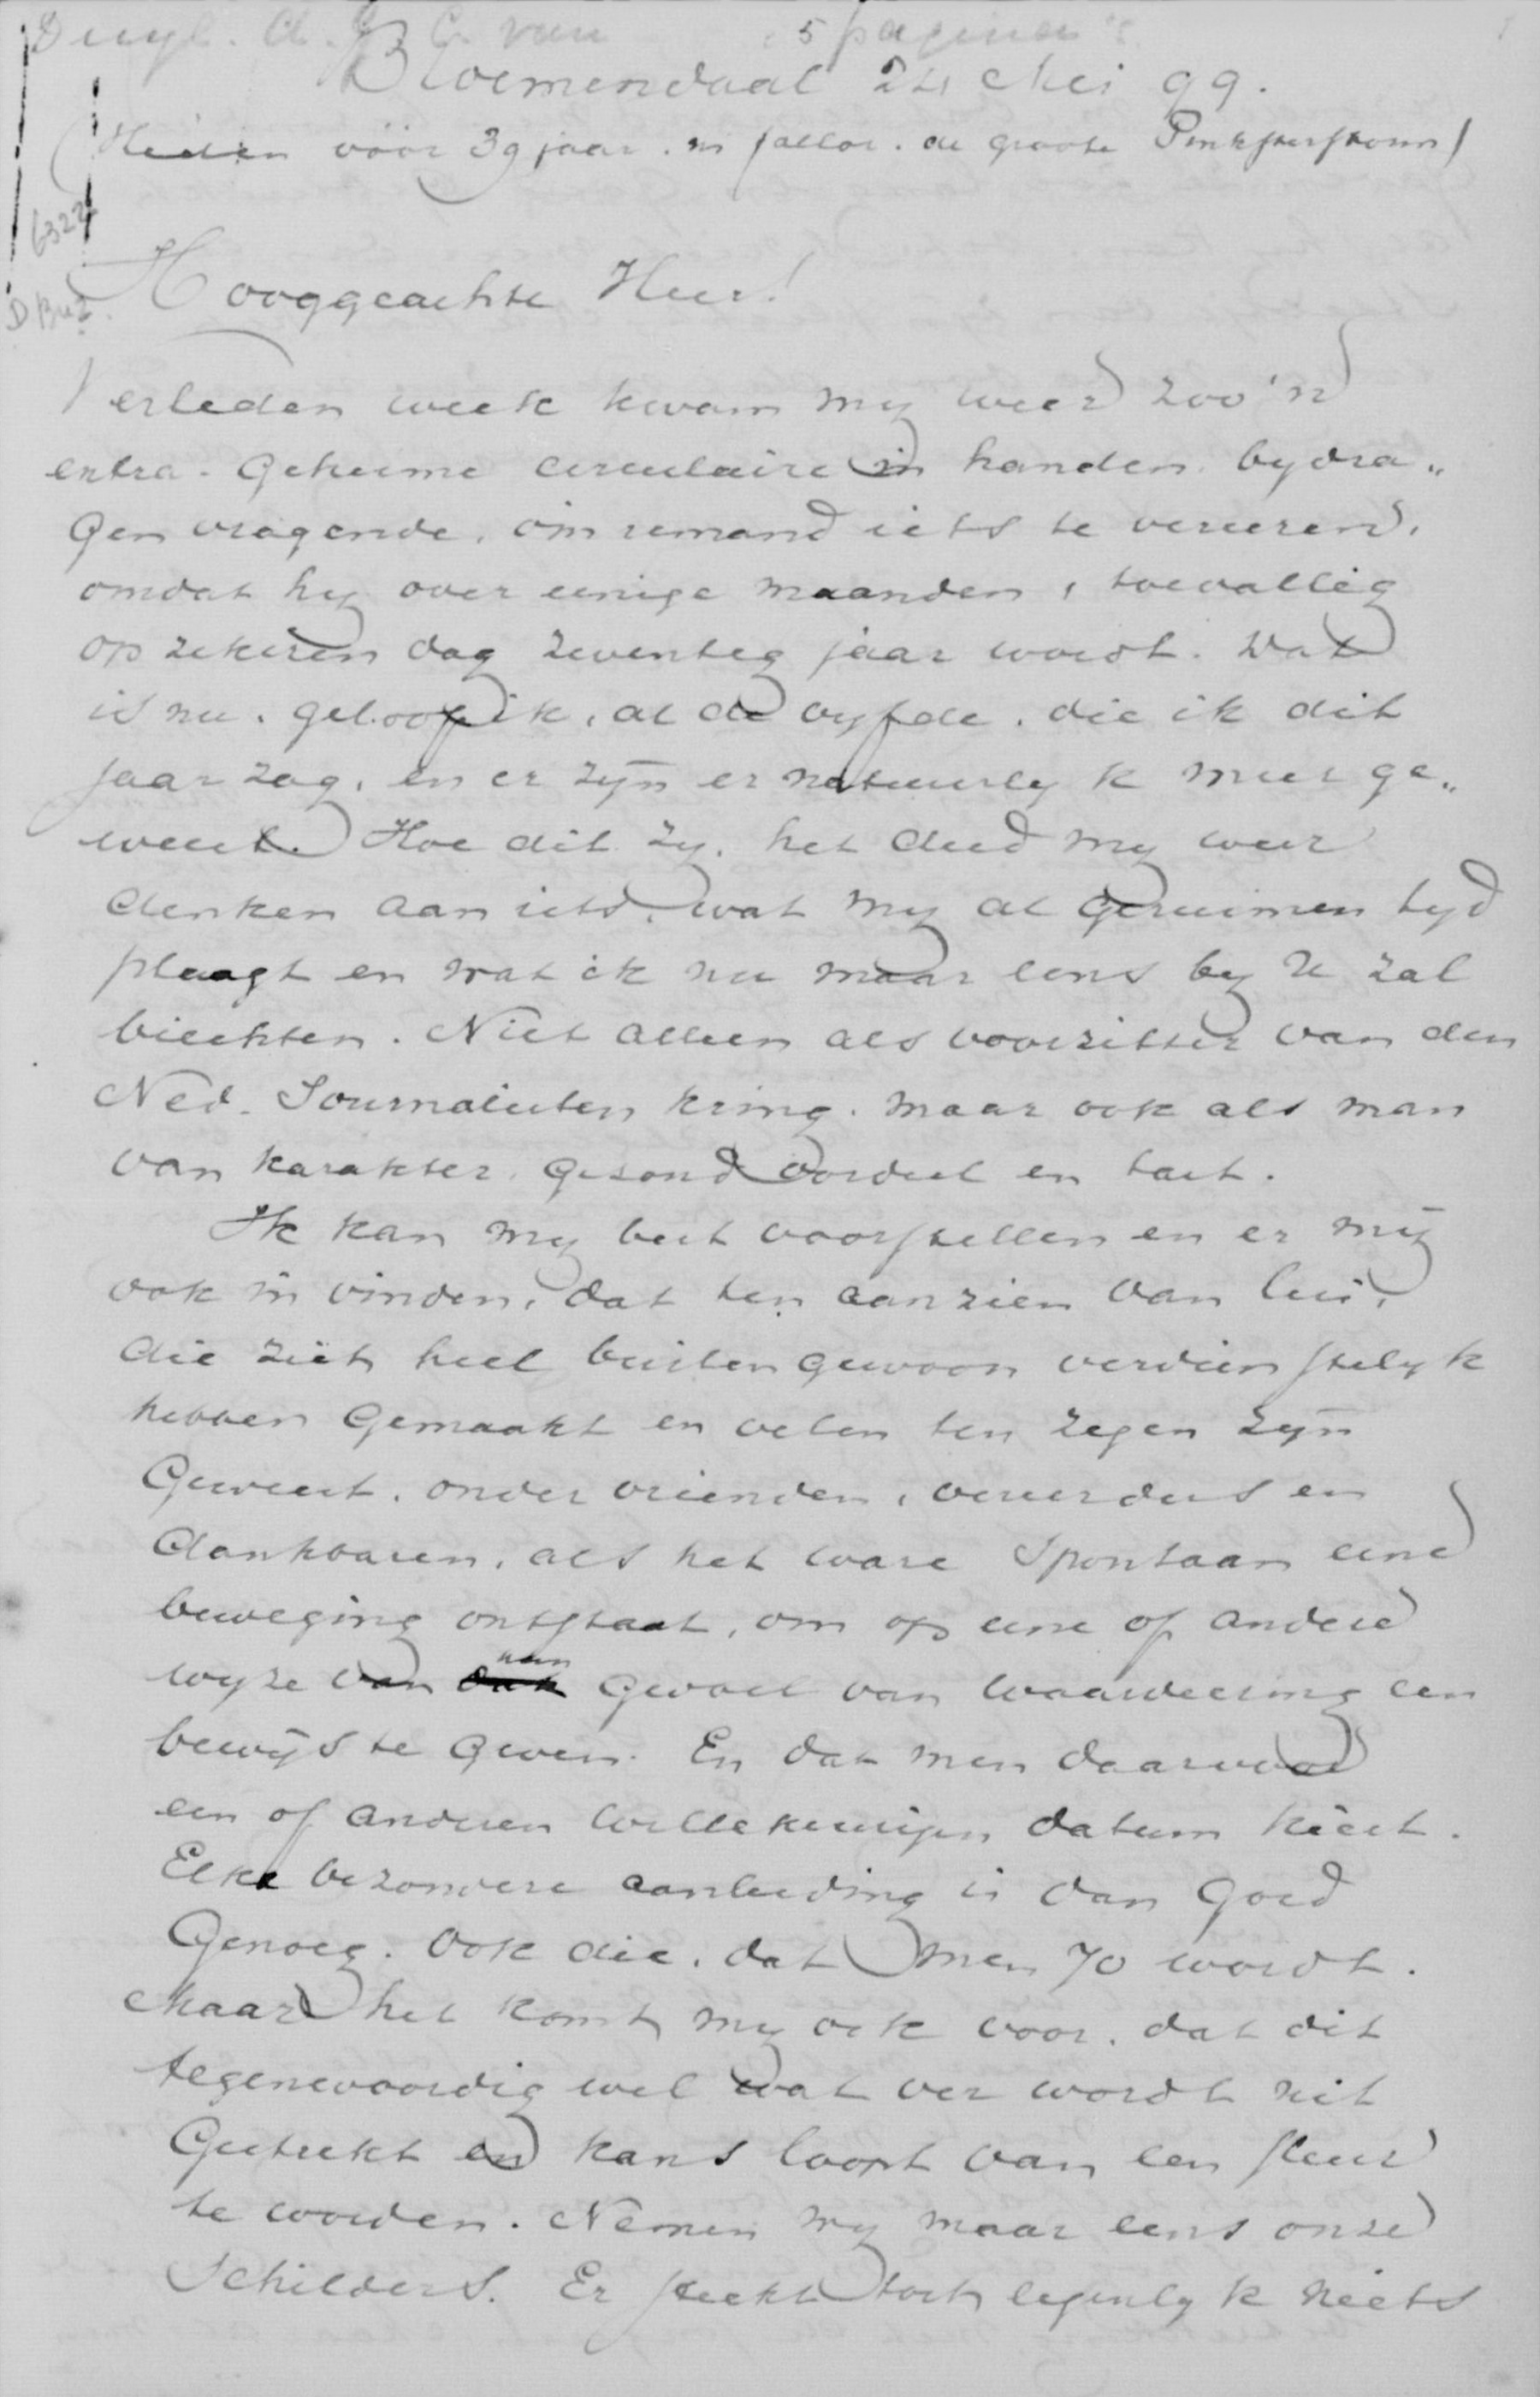 Duyl. A. G. C. van 5 pagina's
Bloemendaal 24 Mei 99.
(Heden vóór 39 jaar. ni fallor. de groote Pinksterstorm)
6322
D Bu2.
Hooggeachte Heer!
Verleden week kwam my weer zoo'n
extra-geheime circulaire in handen, bydra„
gen vragende, om iemand iets te vereeren,
omdat hy over eenige maanden, toevallig
op zekeren dag zeventig jaar wordt. Dat
is nu, geloof ik, al de vyfde, die ik dit
jaar zag, en er zyn er natuurlyk meer ge„
weest. Hoe dit zy, het deed my weer
denken aan iets, wat my al geruimen tyd
plaagt en wat ik nu maar eens by U zal
biechten. Niet alleen als voorzitter van den
Ned. Journalistenkring, maar ook als man
van karakter, gezond oordeel en tact.
Ik kan my best voorstellen en er my
ook in vinden, dat ten aanzien van lui,
die zich heel buitengewoon verdienstelyk
hebben gemaakt en velen ten zegen zyn
geweest, onder vrienden, vereerders en
dankbaren, als het ware spontaan eene
beweging ontstaat, om op eene of andere
wyze van hun gevoel van waardeering een
bewys te geven. En dat men daarvoor
een of anderen willekeurigen datum kiest.
Elke bezondere aanleiding is dan goed
genoeg. Ook die, dat men 70 wordt.
Maar het komt my ook voor, dat dit
tegenwoordig wel wat ver wordt uit
gestrekt en kans loopt van een sleur
te worden. Nemen wy maar eens onze
schilders. Er steekt toch eigenlyk niets